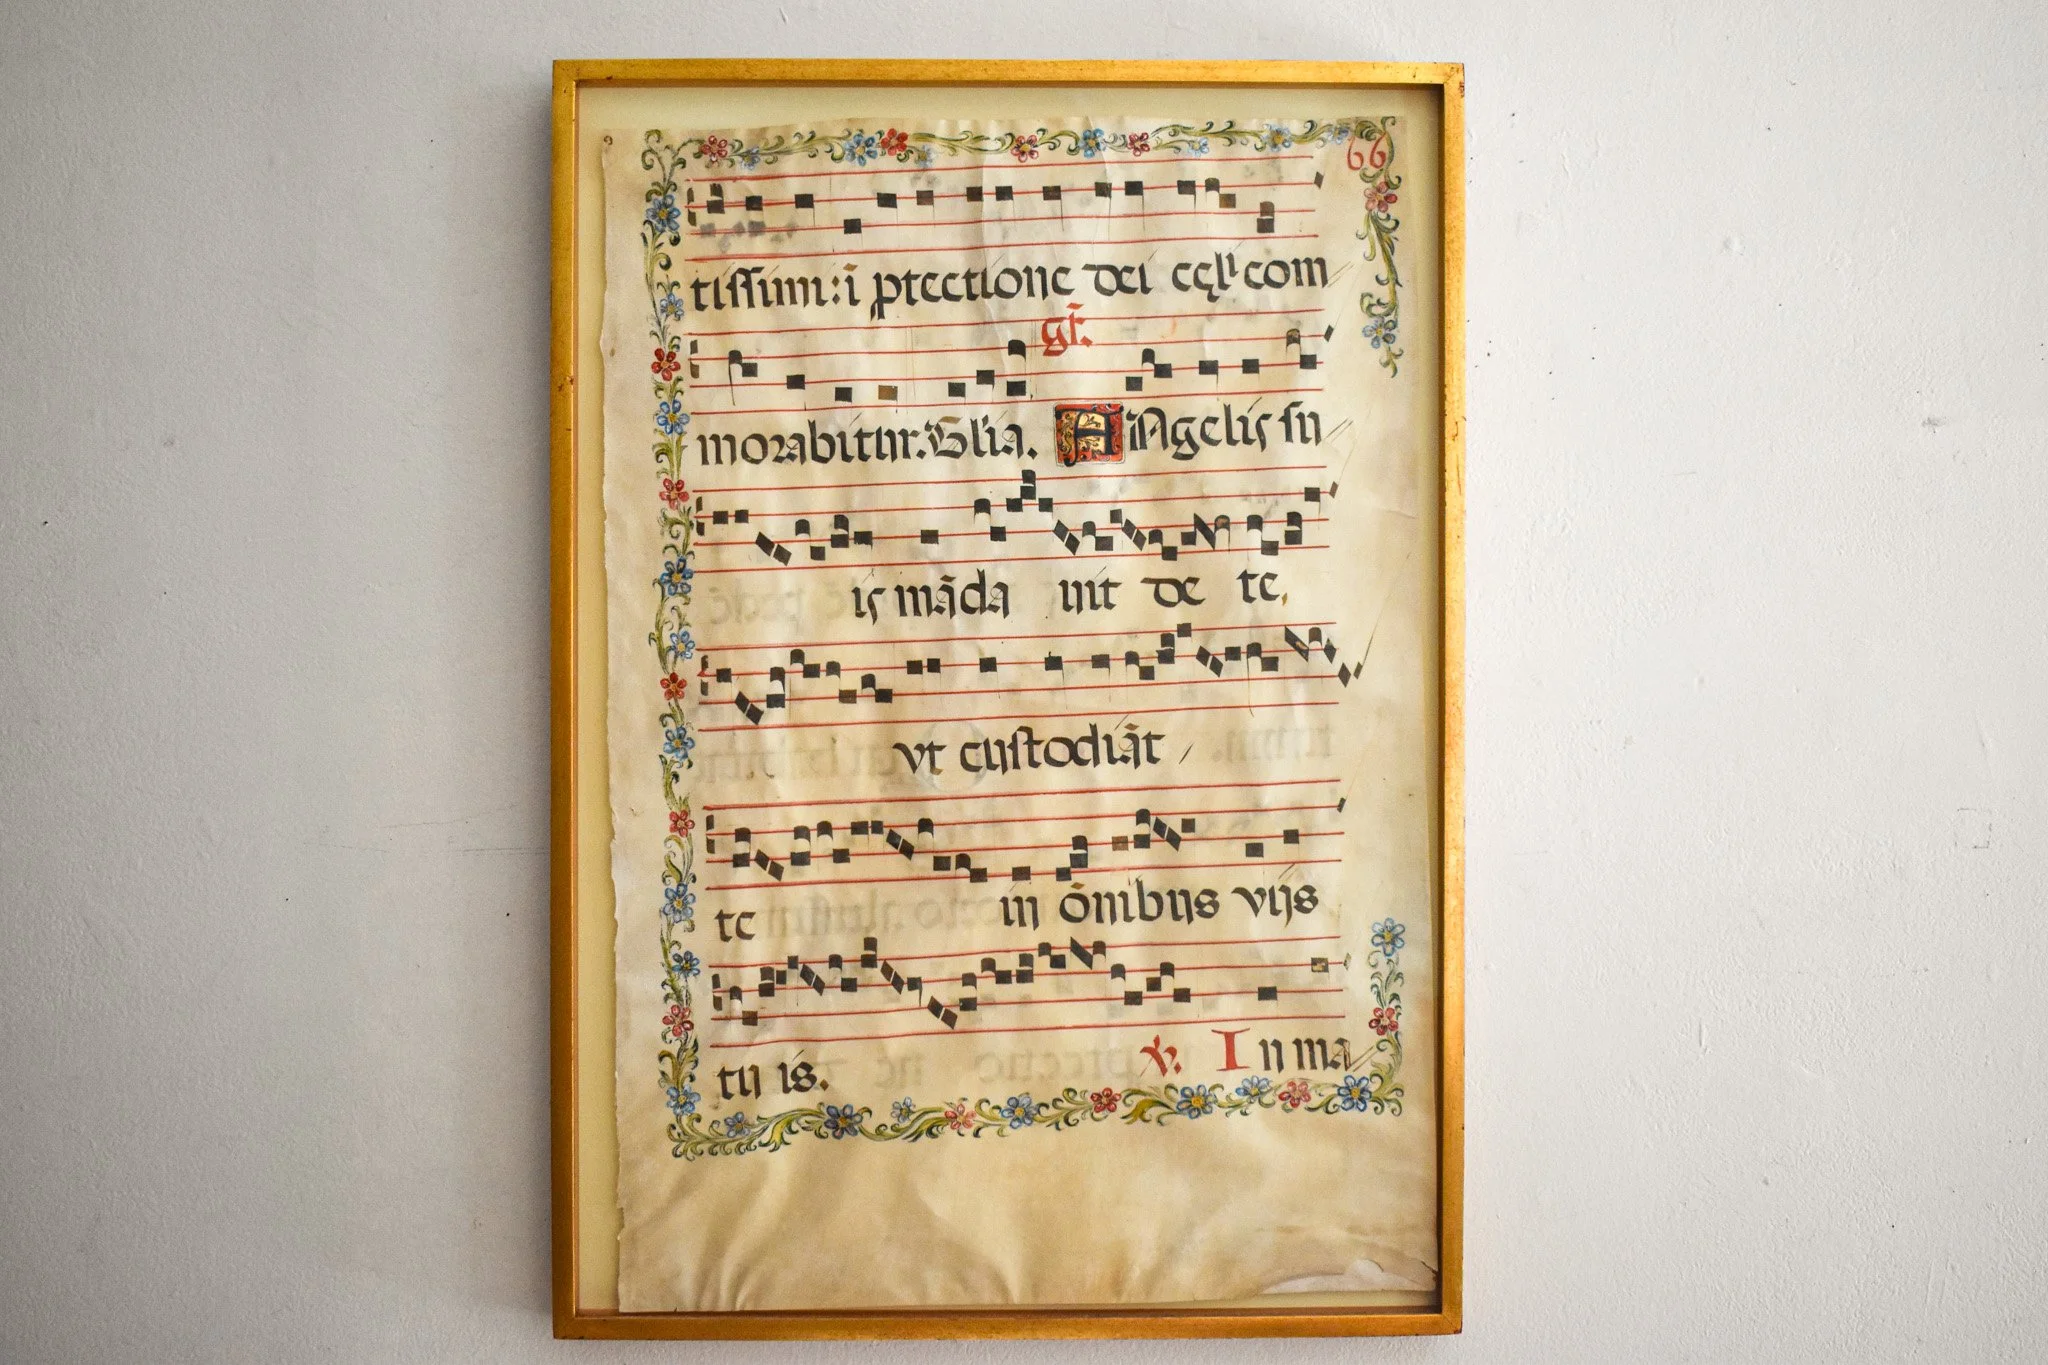 66
tissimi: ī ptectione dei cęlˡ com
gr̄.
morabitur. Glīa. ANgelis su
is mādauit de te.
vt custodiāt
te in ōnibus vijs
tuis. ℣. In ma